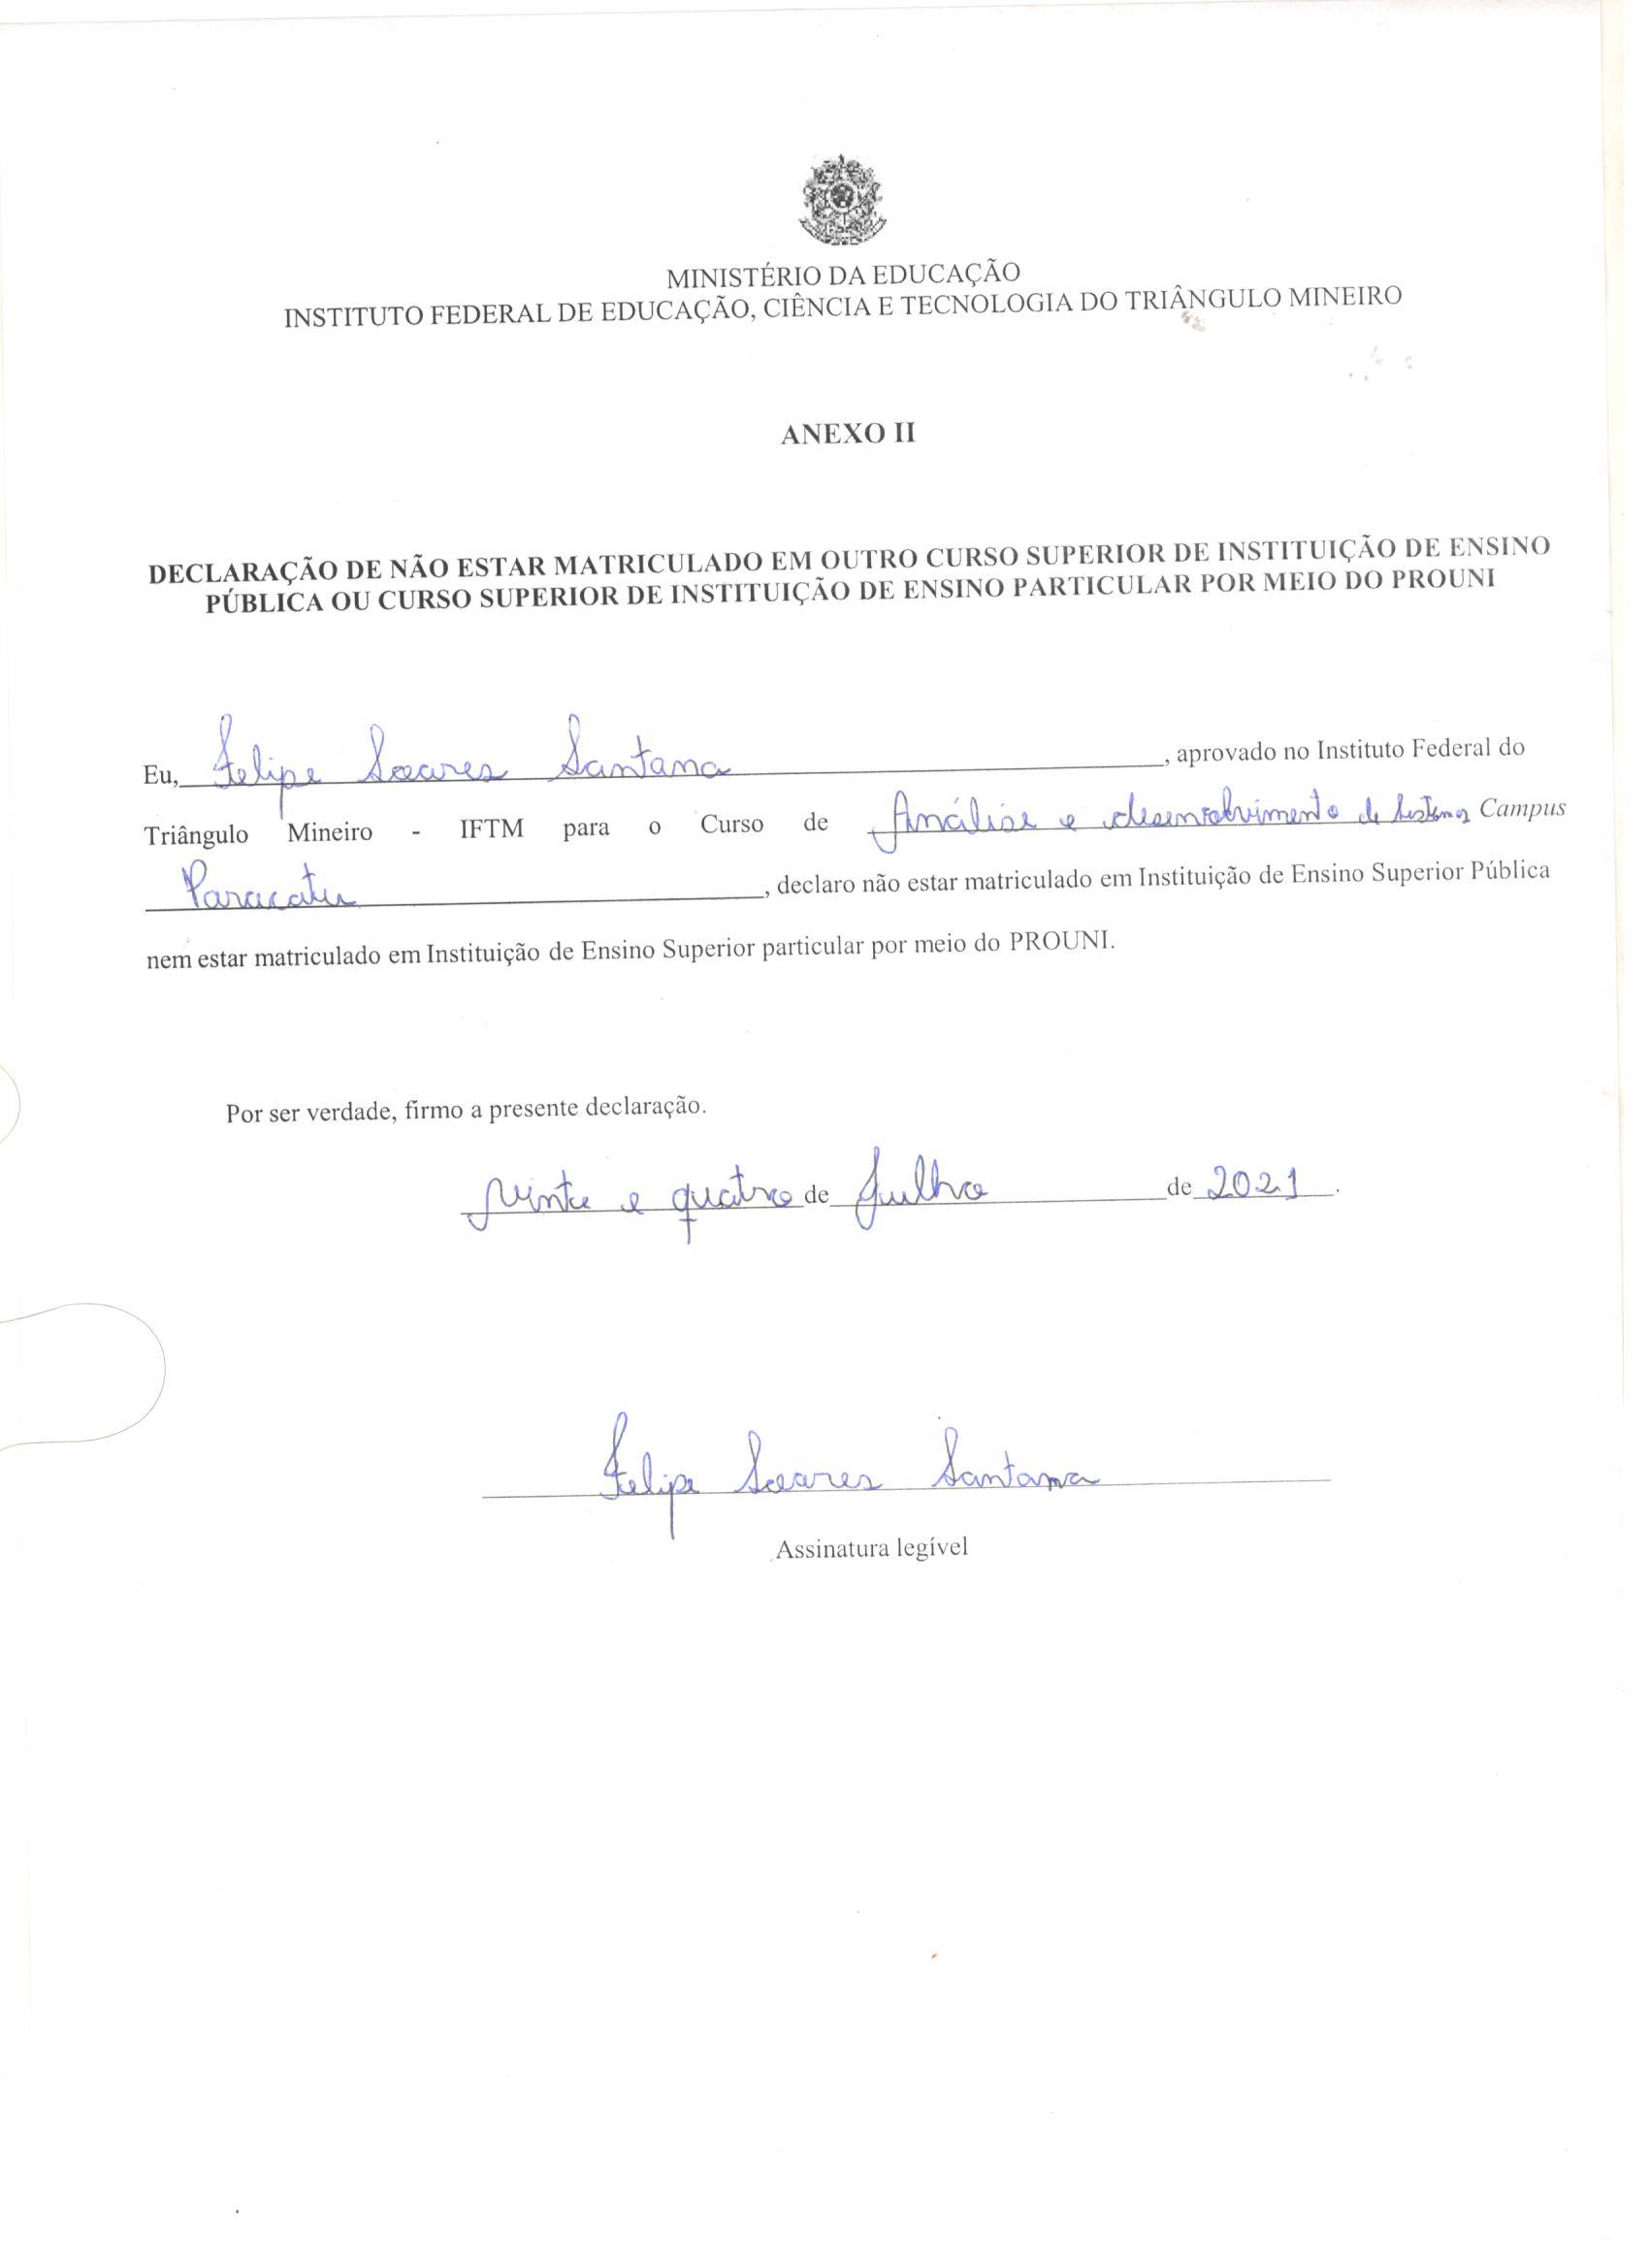 MINISTÉRIO DA EDUCAÇÃO
INSTITUTO FEDERAL DE EDUCAÇÃO, CIÊNCIA E TECNOLOGIA DO TRIÂNGULO MINEIRO
ANEXO II
DECLARAÇÃO DE NÃO ESTAR MATRICULADO EM OUTRO CURSO SUPERIOR DE INSTITUIÇÃO DE ENSINO
PÚBLICA OU CURSO SUPERIOR DE INSTITUIÇÃO DE ENSINO PARTICULAR POR MEIO DO PROUNI
Eu, Felipe Soares Santana, aprovado no Instituto Federal do
Triângulo Mineiro - IFTM para o Curso de Análise e desenvolvimento de Sistemas Campus
Paracatu, declaro não estar matriculado em Instituição de Ensino Superior Pública
nem estar matriculado em Instituição de Ensino Superior particular por meio do PROUNI.
Por ser verdade, firmo a presente declaração.
vinte e quatro de Julho de 2021.
Felipe Soares Santana
Assinatura legível